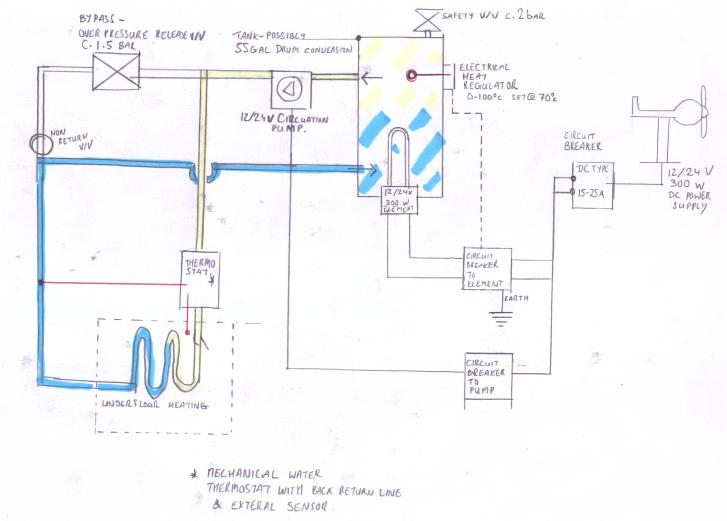 BYPASS -
OVER PRESSURE RELEASE V/V
C. 1.5 BAR
TANK-POSSIBLY
55GAL DRUM CONVERSION
SAFETY V/V C. 2 BAR
ELECTRICAL
HEAT
REGULATOR
0-100°C SET@70°C
12/24V CIRCUATION
PUMP.
NON
RETURN
V/V
CIRCUIT
BREAKER
DC TYPE
15-25A
12/24 V
300 W
DC POWER
SUPPLY
12/24V
300 W
ELEMENT
THERMO
STAT. *
CIRCUIT
BREAKER
TO
ELEMENT
EARTH
CIRCUIT
BREAKER
TO
PUMP
UNDERFLOOR HEATING
* MECHANICAL WATER
THERMOSTAT WITH BACK RETURN LINE
& EXTERAL SENSOR.